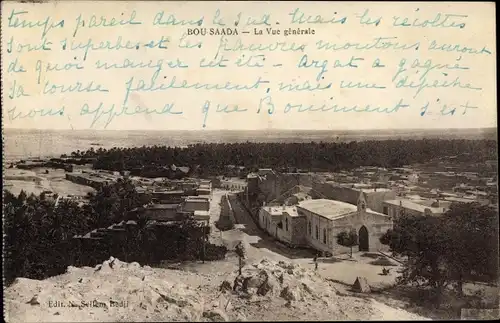 temps pareil dans le sud. Mais les récoltes
BOU-SAADA — La Vue générale
sont superbes et les pauvres moutons auront
de quoi manger cet été – Argat a gagné
sa course facilement, mais une dépêche
nous apprend que Boniment s'est
Edit. N. Sellem Hadji